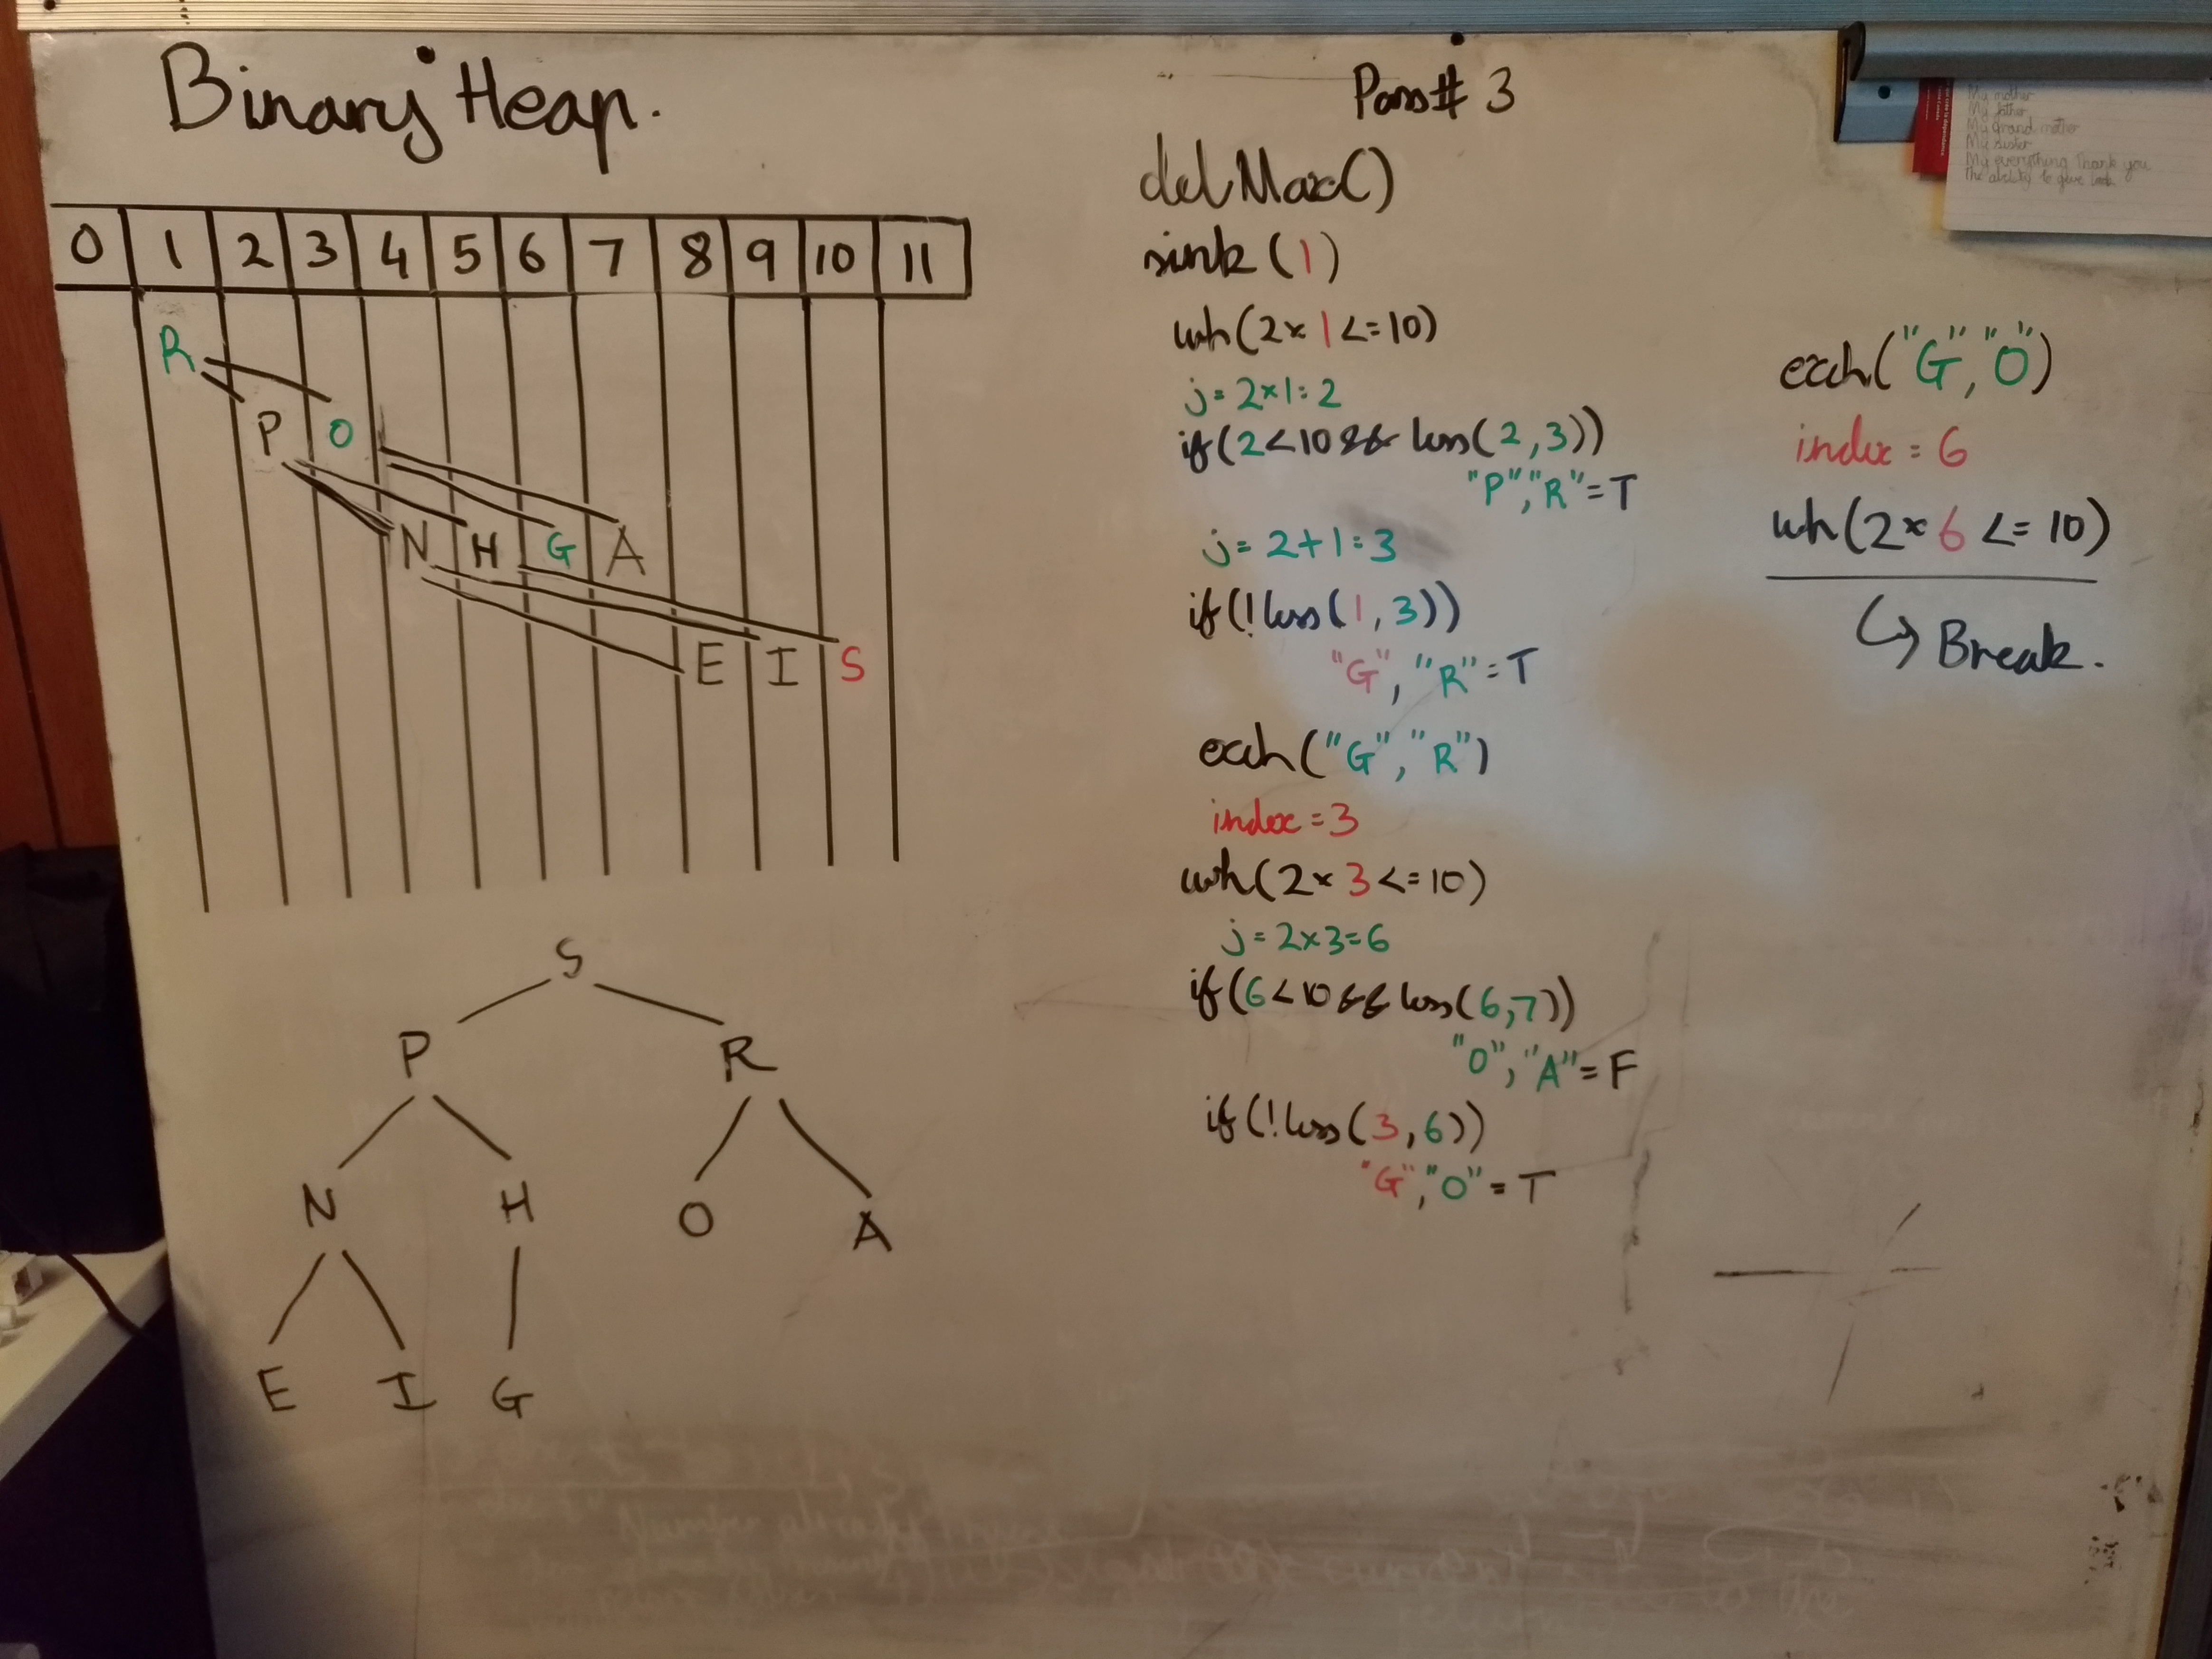 Binary Heap.
0 1 2 3 4 5 6 7 8 9 10 11
R
P O
N H G A
E I S
S
P R
N H O A
E I G
Pass# 3
delMax()
sink (1)
wh(2x1<=10)
j=2x1=2
if(2<10&& less(2,3))
"P","R"=T
j=2+1=3
if(!less(1,3))
"G","R"=T
exch("G","R")
index=3
wh(2x3<=10)
j=2x3=6
if(6<10&&less(6,7))
"O","A"=F
if(!less(3,6))
"G","O"=T
exch("G","O")
index=6
wh(2x6<=10)
Break.
My mother
My father
My Grand mother
My sister
My everything Thank you
The ability to give